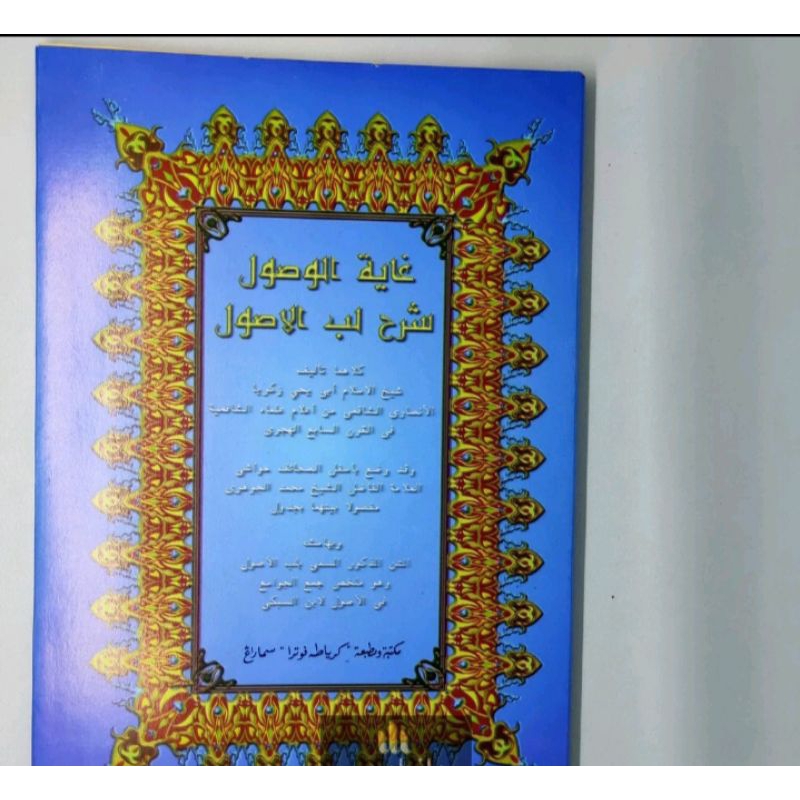 غاية الوصول
لشرح لب الاصول
كلاهما تأليف
شيخ الاسلام أبي يحي زكريا
الأنصاري الشافعي من أعلام علماء الشافعية
في القرن السابع الهجري
وقد وضع بأسفل الصحائف حواشي
العلامة الفاضل الشيخ محمد الجوهري
مفصولا بينهما بجدول
وبهامشه
المتن المذكور المسمى بلب الأصول
وهو ملخص جمع الجوامع
في الأصول لابن السبكي
مكتبة ومطبعة "كرياطه فوترا" سماراڠ